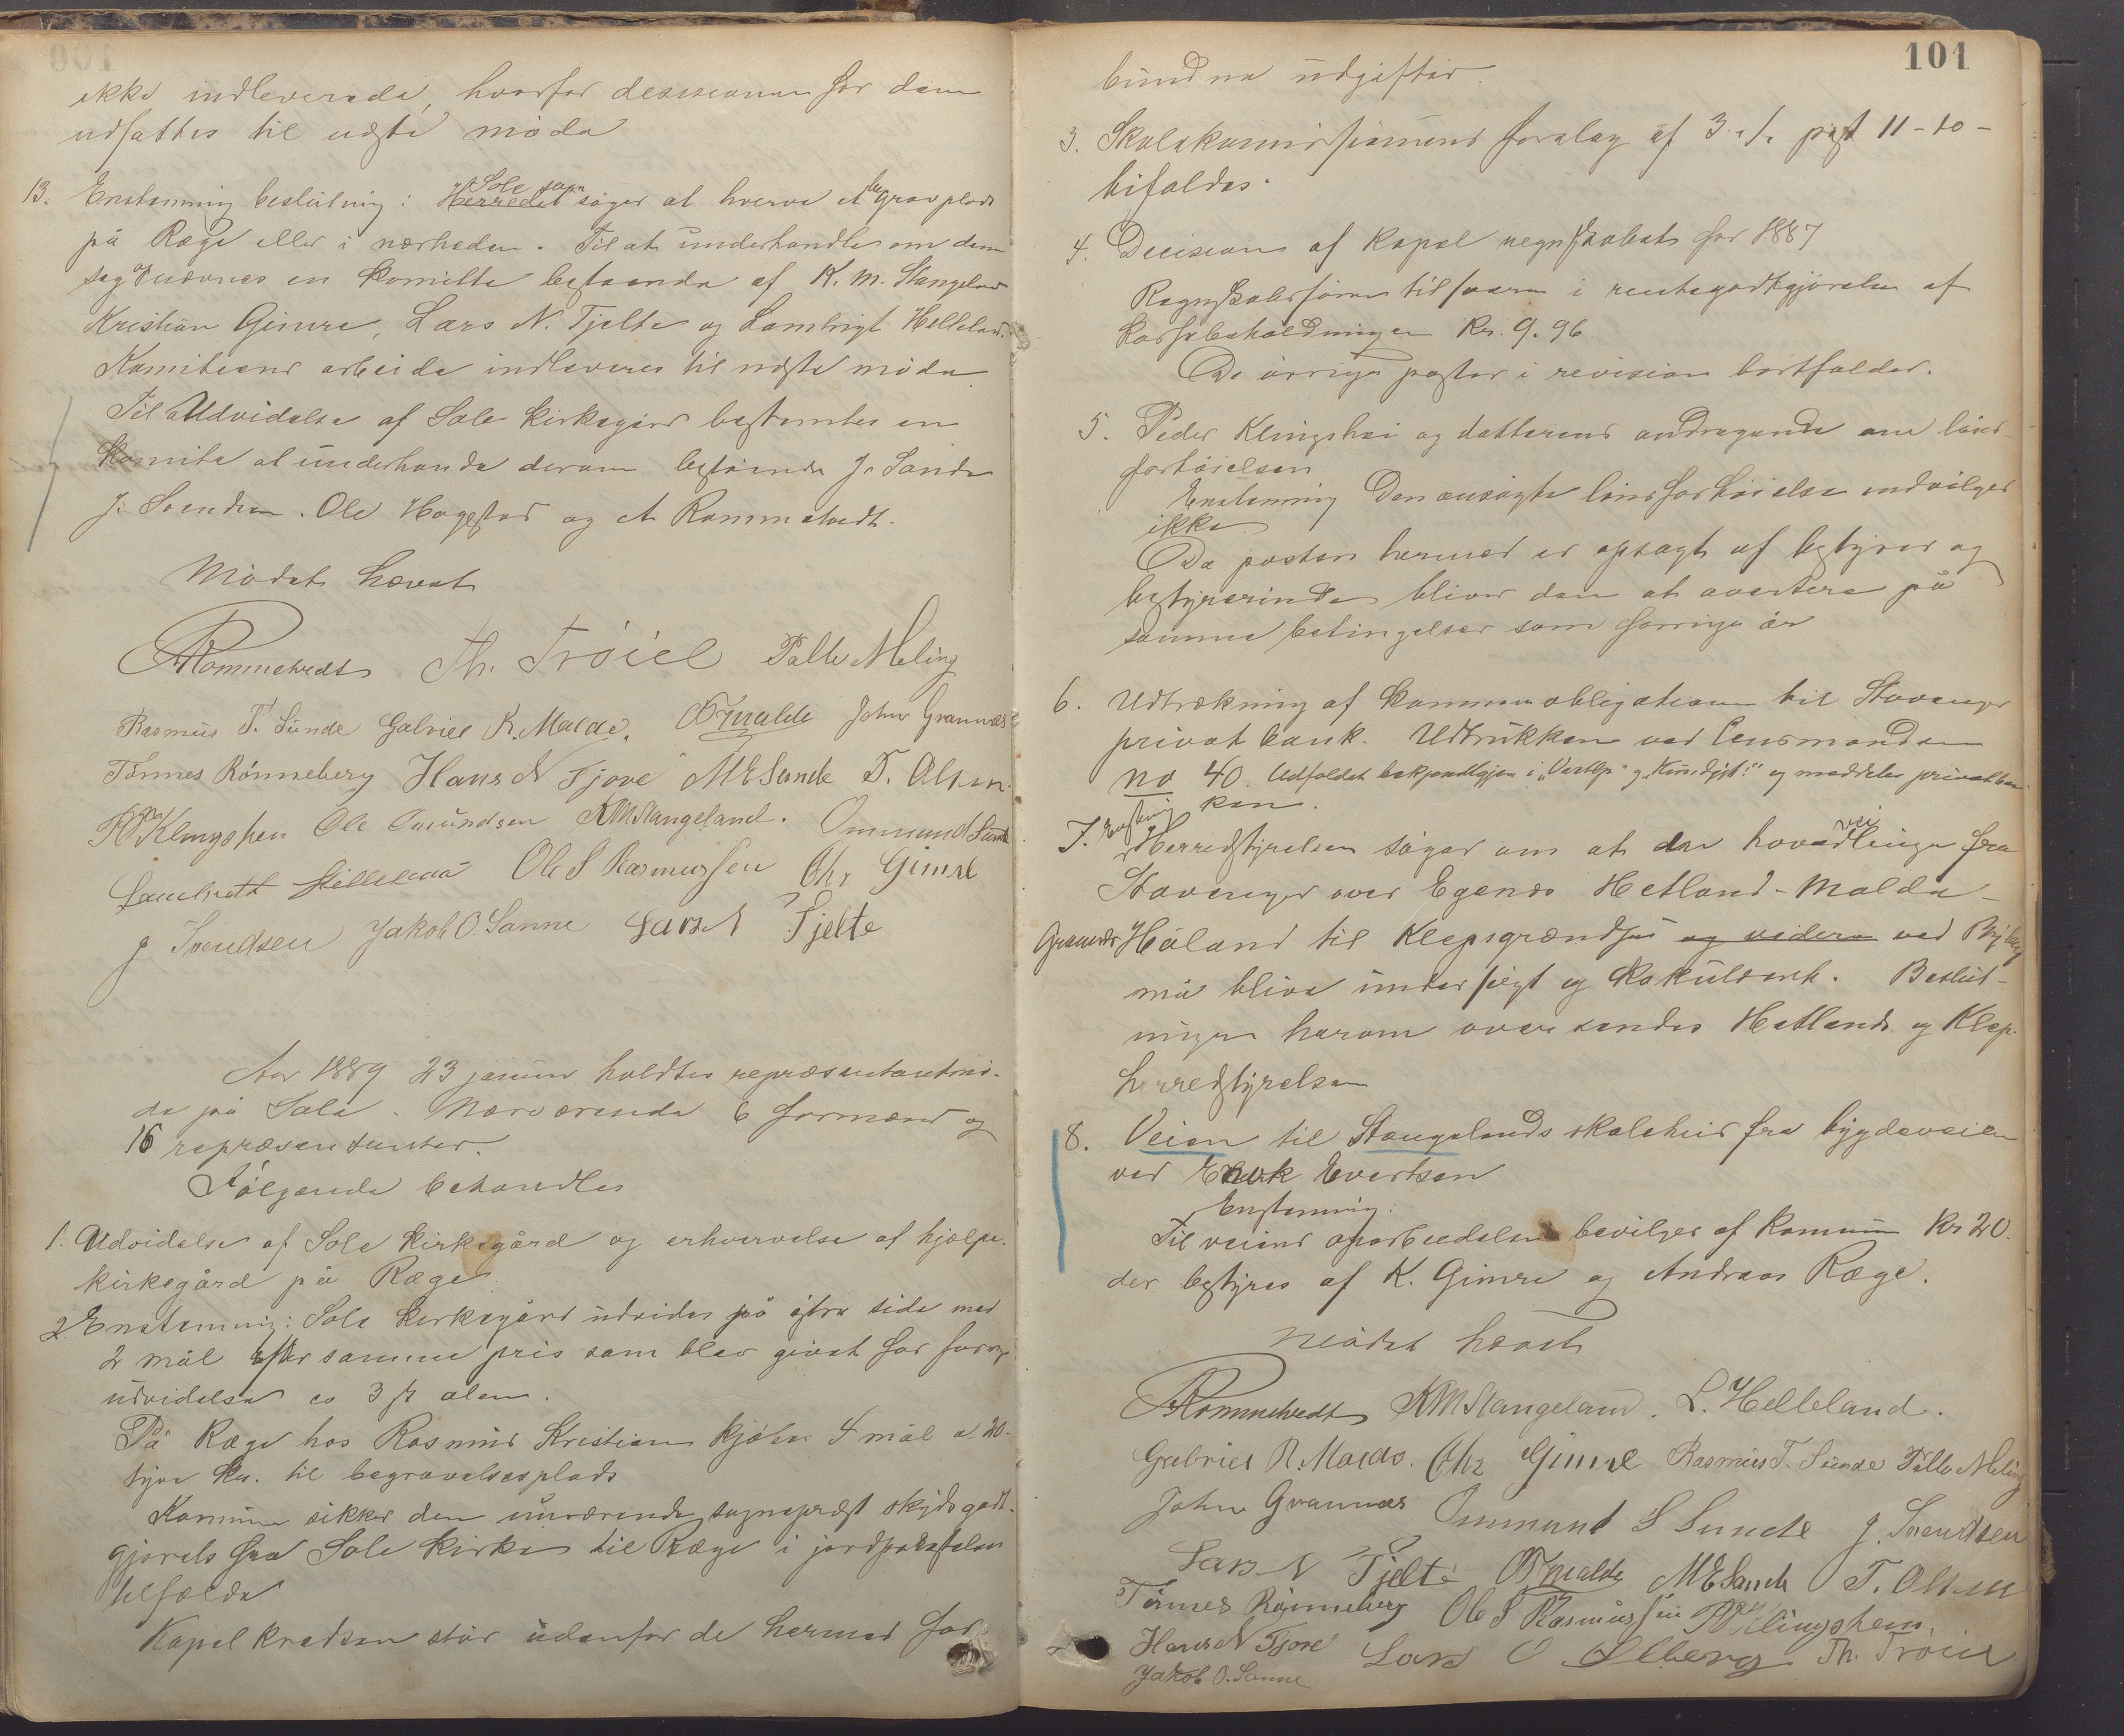 ikke indleverede, hvorfor desisionen for dem
udsattes til næste møde
13. Enstemmig beslutning: Herredet Sole sogn søger at hverve et begravplads
på Ræge eller i nærheden. Til at underhandle om denne
sag nævnes en komitte bestaaende af K. M. Stangeland
Kristian Gimre, Lars N. Tjelte og Lambrigt Helleland.
Komiteens arbeide indleveres til næste møde.
Til Udvidelse af Sole kirkegård bestemtes en
komite at underhandle derom bestående J. Sande
J. Svendsen. Ole Hogstad og A Rommetvedt.
Mødet hævet
ARommetvedt Th. Tróiel Palle Meling
Rasmus T. Sunde Gabriel R. Malde. OTmalde John Grannæs
Tönnes Rönneberg Hans N Tjore M E Sande T. Olsen.
POKlingshen Ole Omundsen KMStangeland. Ommund Sunde
Lambrett Helleland Ole S Rasmussen Chr Gimre
J Svendsen Jakob O. Sanne Lars N Tjelte
Aar 1889 23 januar holdtes repræsentantmö-
de på Sola. Nærværende 6 formænd og
16 repræsentanter.
Følgende behandles
1. Udvidelse af Sole kirkegård og erhvervelse af hjælpe-
kirkegård på Ræge.
2. Enstemmig: Sole kirkegård udvides på østre side med
2 mål efter samme pris som blev givet for forrige
udvidelse co 3 ß alen.
På Ræge hos Rasmus Kristian kjøbes 4 mål a 20-
tyve kr. til begravelsesplads
Kommunen sikker den nuværende sogneprest skydsgodt-
gjørels fra Sole kirke til Ræge i jordpåkastelsen
tilfælde
Kapelkredsen står udenfor de hermed for-
101
bundne udgifter.
3. Skolekommissionens forslag af 3. /1. post 11-10-
bifaldes.
4. Decision af kapel regnskabet for 1887
Regnskabsføren tilsvarer i rentegodtgjørelse af
kassabeholdningen Kr. 9.96.
De øvrige poster i revision bortfalder.
5. Peder Klingshei og datterens andragende om löns-
forhöielsen
Enstemmig Den ansøgte lönsforhöielse indvilges
ikke.
Da posten hermed er opsagt af bestyrer og
bestyrerinde bliver den at avertere på
samme betingelser som forrige år
6. Udtrækning af kommunobligationen til Stavanger
privatbank. Udtrukken ved Lensmanden
no 40. Udfaldet bekjendtgjøres i "Vestlp" og "Kundgjt." og meddeles privatban-
ken.
7. Enstemmig Herredstyrelsen søger om at den hovedveilinge fra
Stavanger over Egenæs Hetland-Malde-
Grannæs Håland til Klepsgrændse og videre ved Bybeg
må blive undersögt og kakuleret. Beslut-
ningen herom oversendes Hetlands og Klep-
herredstyrelsen
8. Veien til Stangelands skolehus fra bygdeveien
ved Enok Evertsen
Enstemmig:
Til veiens oparbeidelse bevilges af kommun Kr 20.
der bestyres af K. Gimre og Andreas Ræge.
Mødet hævet
ARommetvedt KMStangeland. L. Helleland.
Gabriel R. Malde. Chr Gimre Rasmus T. Sunde Palle Meling
John Grannæs Ommund S Sunde J. Svendsen
Lars N Tjelte OTmalde M E Sande T. Olsen
Tönnes Rönneberg Ole S Rasmussen POKlingshem,
Hans N Tjore Lars O Solberg Th. Tróiel
Jakob O. Sanne